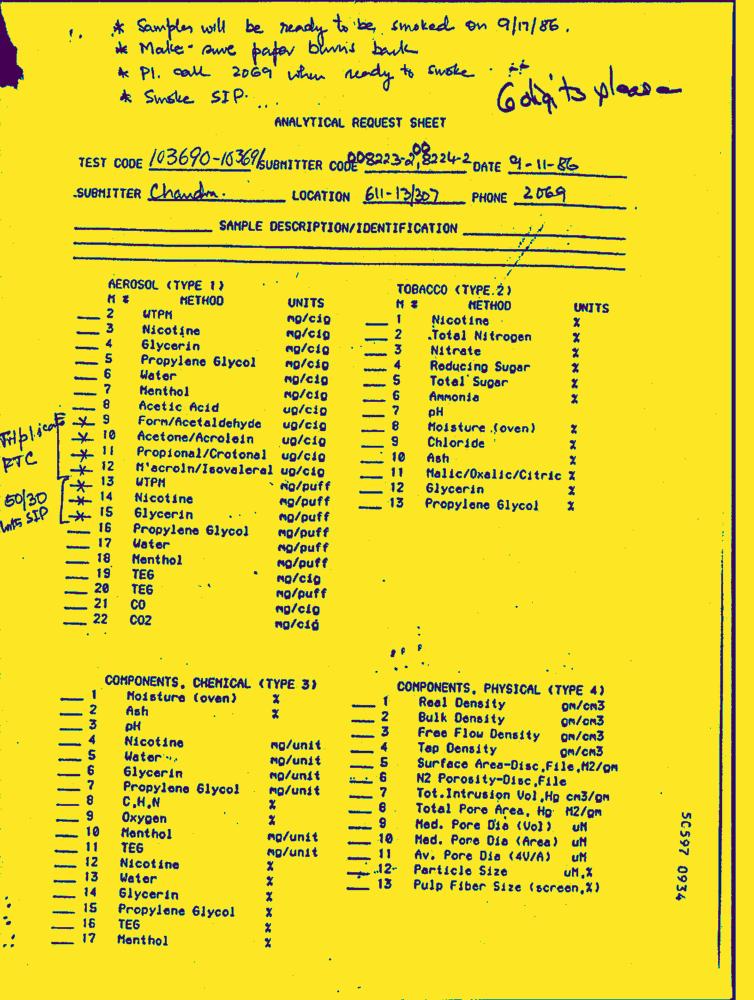 * Samples will be ready to be smoked on 9/17/86.
* Make sure paper burns back
* Pl. call 2069 when ready to smoke.
* Smoke SIP.
6 digits please
ANALYTICAL REQUEST SHEET
TEST CODE 103690-103691 SUBMITTER CODE 008223-2, 008224-2 DATE 9-11-86
SUBMITTER Chandra. LOCATION 611-13/307 PHONE 2069
SAMPLE DESCRIPTION/IDENTIFICATION
AEROSOL (TYPE 1)
M # METHOD UNITS
2 WTPM mg/cig
3 Nicotine mg/cig
4 Glycerin mg/cig
5 Propylene Glycol mg/cig
6 Water mg/cig
7 Menthol mg/cig
8 Acetic Acid ug/cig
* 9 Form/Acetaldehyde ug/cig
* 10 Acetone/Acrolein ug/cig
* 11 Propional/Crotonal ug/cig
* 12 M'acroln/Isovaleral ug/cig
* 13 WTPM mg/puff
* 14 Nicotine mg/puff
* 15 Glycerin mg/puff
16 Propylene Glycol mg/puff
17 Water mg/puff
18 Menthol mg/puff
19 TEG mg/cig
20 TEG mg/puff
21 CO mg/cig
22 CO2 mg/cig
Triplicate
RTC
50/30
SIP
TOBACCO (TYPE.2)
M # METHOD UNITS
1 Nicotine %
2 Total Nitrogen %
3 Nitrate %
4 Reducing Sugar %
5 Total Sugar %
6 Ammonia %
7 pH
8 Moisture (oven) %
9 Chloride %
10 Ash %
11 Malic/Oxalic/Citric %
12 Glycerin %
13 Propylene Glycol %
COMPONENTS, CHEMICAL (TYPE 3)
1 Moisture (oven) %
2 Ash %
3 pH
4 Nicotine mg/unit
5 Water mg/unit
6 Glycerin mg/unit
7 Propylene Glycol mg/unit
8 C,H,N %
9 Oxygen %
10 Menthol mg/unit
11 TEG mg/unit
12 Nicotine %
13 Water %
14 Glycerin %
15 Propylene Glycol %
16 TEG %
17 Menthol %
COMPONENTS, PHYSICAL (TYPE 4)
1 Real Density gm/cm3
2 Bulk Density gm/cm3
3 Free Flow Density gm/cm3
4 Tap Density gm/cm3
5 Surface Area-Disc,File,M2/gm
6 N2 Porosity-Disc,File
7 Tot.Intrusion Vol,Hg cm3/gm
8 Total Pore Area, Hg M2/gm
9 Med. Pore Dia (Vol) uM
10 Med. Pore Dia (Area) uM
11 Av. Pore Dia (4V/A) uM
12 Particle Size uM,%
13 Pulp Fiber Size (screen,%)
50597 0934